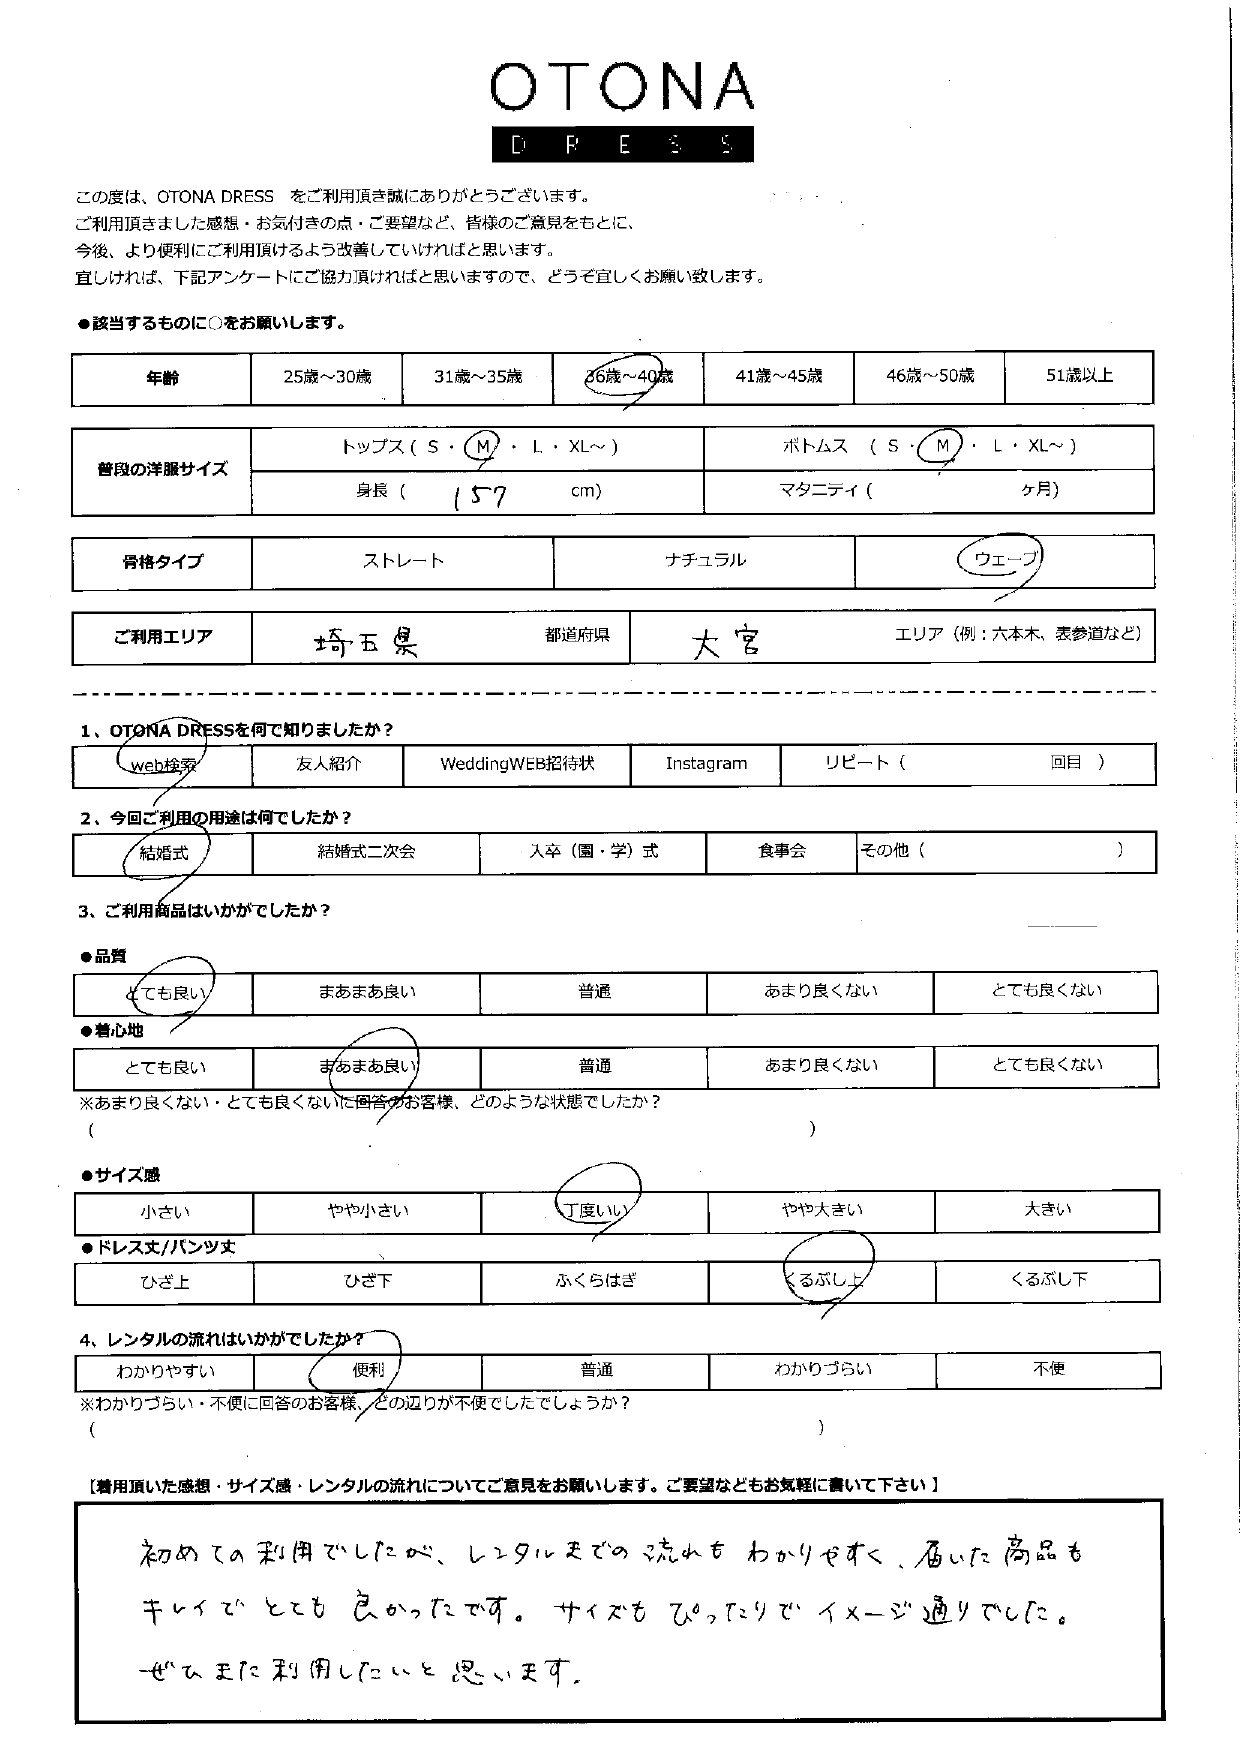 OTONA
DRESS
この度は、OTONA DRESS をご利用頂き誠にありがとうございます。
ご利用頂きました感想・お気付きの点・ご要望など、皆様のご意見をもとに、
今後、より便利にご利用頂けるよう改善していければと思います。
宜しければ、下記アンケートにご協力頂ければと思いますので、どうぞ宜しくお願い致します。
●該当するものに○をお願いします。
年齢 25歳～30歳 31歳～35歳 36歳～40歳 41歳～45歳 46歳～50歳 51歳以上
普段の洋服サイズ トップス ( S ・ M ・ L ・ XL～ ) ボトムス ( S ・ M ・ L ・ XL～ )
身長 ( 157 cm) マタニティ ( ヶ月)
骨格タイプ ストレート ナチュラル ウェーブ
ご利用エリア 埼玉県 都道府県 大宮 エリア（例：六本木、表参道など）
1、OTONA DRESSを何で知りましたか？
web検索 友人紹介 WeddingWEB招待状 Instagram リピート（ 回目 ）
2、今回ご利用の用途は何でしたか？
結婚式 結婚式二次会 入卒（園・学）式 食事会 その他（ ）
3、ご利用商品はいかがでしたか？
●品質
とても良い まあまあ良い 普通 あまり良くない とても良くない
●着心地
とても良い まあまあ良い 普通 あまり良くない とても良くない
※あまり良くない・とても良くないに回答のお客様、どのような状態でしたか？
( )
●サイズ感
小さい やや小さい 丁度いい やや大きい 大きい
●ドレス丈/パンツ丈
ひざ上 ひざ下 ふくらはぎ くるぶし上 くるぶし下
4、レンタルの流れはいかがでしたか？
わかりやすい 便利 普通 わかりづらい 不便
※わかりづらい・不便に回答のお客様、どの辺りが不便でしたでしょうか？
( )
【着用頂いた感想・サイズ感・レンタルの流れについてご意見をお願いします。ご要望などもお気軽に書いて下さい】
初めての利用でしたが、レンタルまでの流れもわかりやすく、届いた商品も
キレイでとても良かったです。サイズもぴったりでイメージ通りでした。
ぜひまた利用したいと思います。